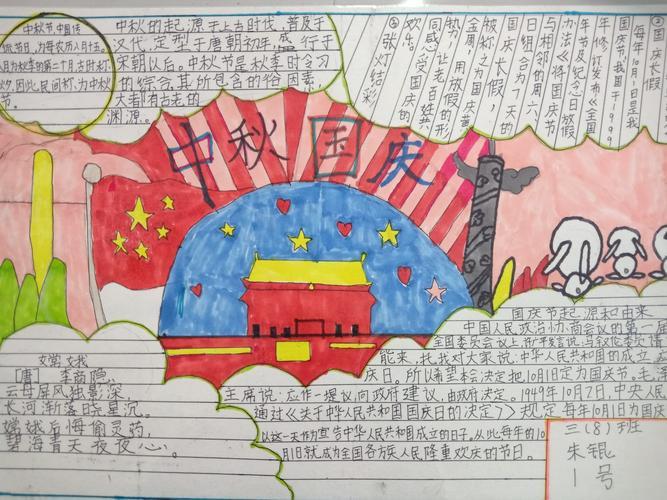 中秋节,中国传
统节日,为每农历八月十五,
八月为秋季的第二个月,古时称
因此,民间称,为中秋
节。
中秋的起源于上古时代,普及于
汉代,定型于唐朝初年,盛行于
宋朝以后。中秋节是秋季时令习
的综合,其所包含的俗因素,
大都有古老的
渊源。
国庆长假
每年10月1日是我
国庆节,我国于1999
年修订发布《全国
年节及纪念日放假
办法》《将国庆节
与相邻的周六、
日组合为7天的
国庆长假,
被称之为国庆黄
金周,用放假的形
势,让老百姓共
同感受国庆
张灯结彩
中秋国庆
[唐] 李商隐
云母屏风独影深,
长河渐落晓星沉。
嫦娥后悔偷灵药,
碧海青天夜夜心。
国庆节起源和由来
中国人民政治协商会议的第一
全国委员会议上,许广平发言说,马叙伦委员请
能来,托我对大家说:中华人民共和国的成立
庆日。所以希望本会决定把10月1日定为国庆节,毛泽
主席说:应作一提议,向政府建议,由政府决定。1949年10月2日,中央人民
通过《关于中华人民共和国国庆日的决定》规定每年10月1日为国庆
以这一天作为宣告中华人民共和国成立的日子。从此每年的10
月1日就成为全国各族人民隆重欢庆的节日。
三(8)班
朱锟
1号